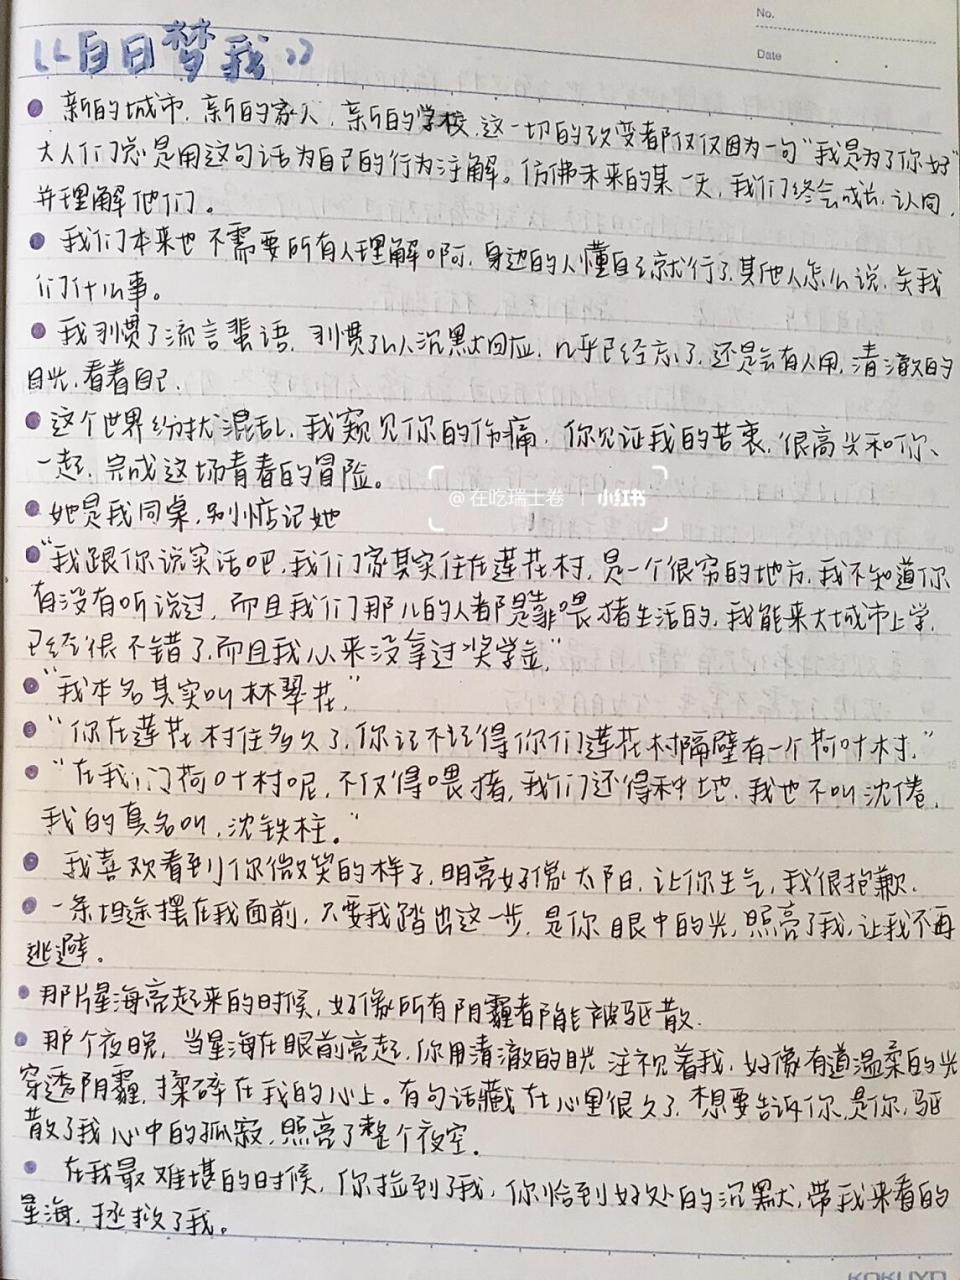 No.
《白日梦我》
Date
● 新的城市,新的家人,新的学校,这一切的改变都仅仅因为一句“我是为了你好”
大人们总是用这句话为自己的行为注解。仿佛未来的某一天,我们终会成长,认同,
并理解他们。
● 我们本来也不需要所有人理解啊,身边的人懂自己就行了,其他人怎么说,关我
们什么事。
● 我习惯了流言蜚语,习惯了以沉默回应,几乎已经忘了,还是会有人用,清澈的
目光,看着自己.
● 这个世界纷扰混乱,我窥见你的伤痛,你见证我的苦衷,很高兴和你、
一起,完成这场青春的冒险。
@在吃瑞士卷 小红书
● 她是我同桌,别惦记她
● “我跟你说实话吧,我们家其实住在莲花村,是一个很穷的地方,我不知道你
有没有听说过,而且我们那儿的人都是靠喂猪生活的,我能来大城市上学,
已经很不错了,而且我从来没拿过奖学金,”
● “我本名其实叫林翠花,”
● “你在莲花村住多久了,你记不记得你们莲花村隔壁有一个荷叶村,”
● “在我们荷叶村呢,不仅得喂猪,我们还得种地,我也不叫沈倦,
我的真名叫,沈铁柱。”
● 我喜欢看到你微笑的样子,明亮好像太阳,让你生气,我很抱歉.
● 一条坦途摆在我面前,只要我踏出这一步,是你眼中的光,照亮了我,让我不再
逃避。
● 那片星海亮起来的时候,好像所有阴霾都能被驱散.
● 那个夜晚,当星海在眼前亮起,你用清澈的目光注视着我,好像有道温柔的光
穿透阴霾,揉碎在我的心上。有句话藏在心里很久了,想要告诉你,是你,驱
散了我心中的孤寂,照亮了整个夜空.
● 在我最难堪的时候,你捡到了我,你恰到好处的沉默,带我来看的
星海,拯救了我。
KOKUYO